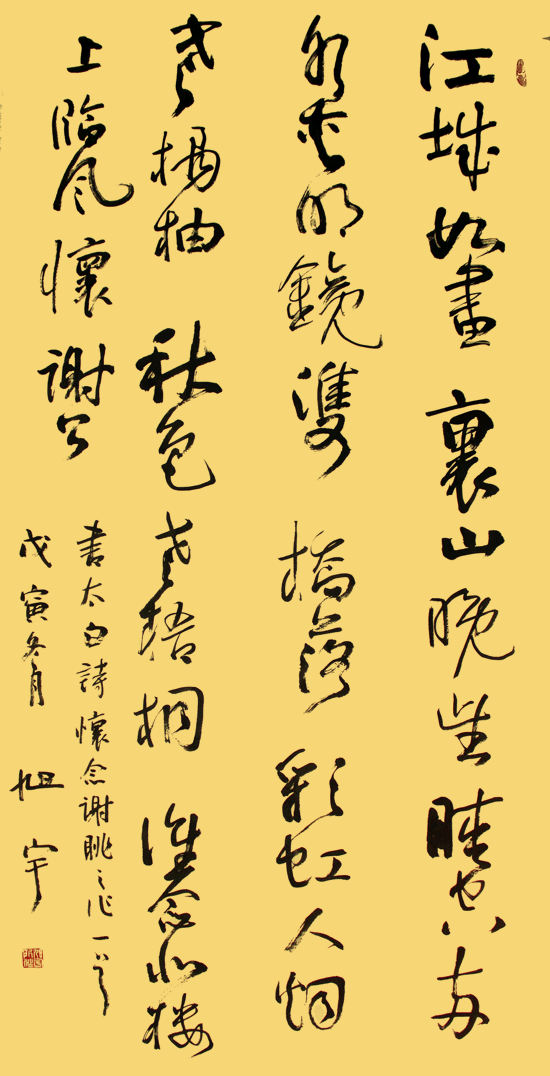 江城如畫裏山晚望晴空兩
水夾明鏡雙橋落彩虹人烟
寒橘柚秋色老梧桐誰念北樓
上臨風懷謝公
書太白詩懷念謝朓之作一首
戊寅冬月旭宇